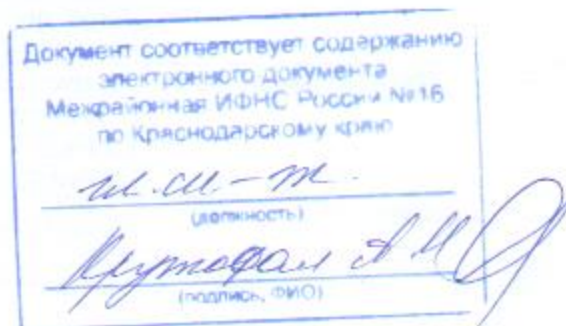 Документ соответствует содержанию
электронного документа
Межрайонная ИФНС России №16
по Краснодарскому краю
(должность)
А М
(подпись, ФИО)